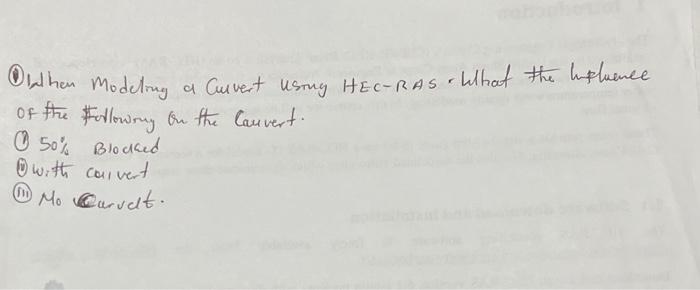 ① When Modelling a Cuvert using HEC-RAS. What the Influence
OF the Following On the Cauvert.
① 50% Blocked
② with couvert
(III) No Curvelt.